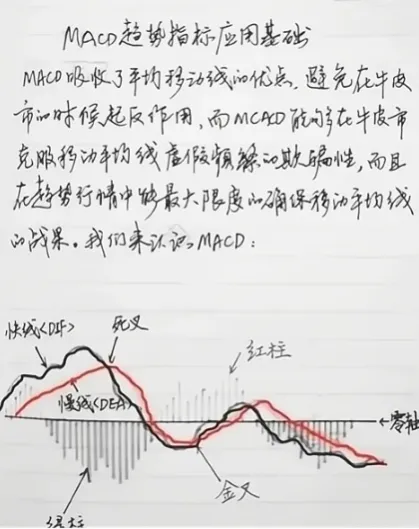 MACD趋势指标应用基础
MACD吸收了平均移动线的优点，避免在牛皮
市的时候起反作用，而MCACD能够在牛皮市
克服移动平均线虚假频繁的欺骗性，而且
在趋势行情中够最大限度的确保移动平均线
的战果。我们来认识MACD：
快线<DIF>
死叉
红柱
慢线<DEA>
←零轴
金叉
绿柱